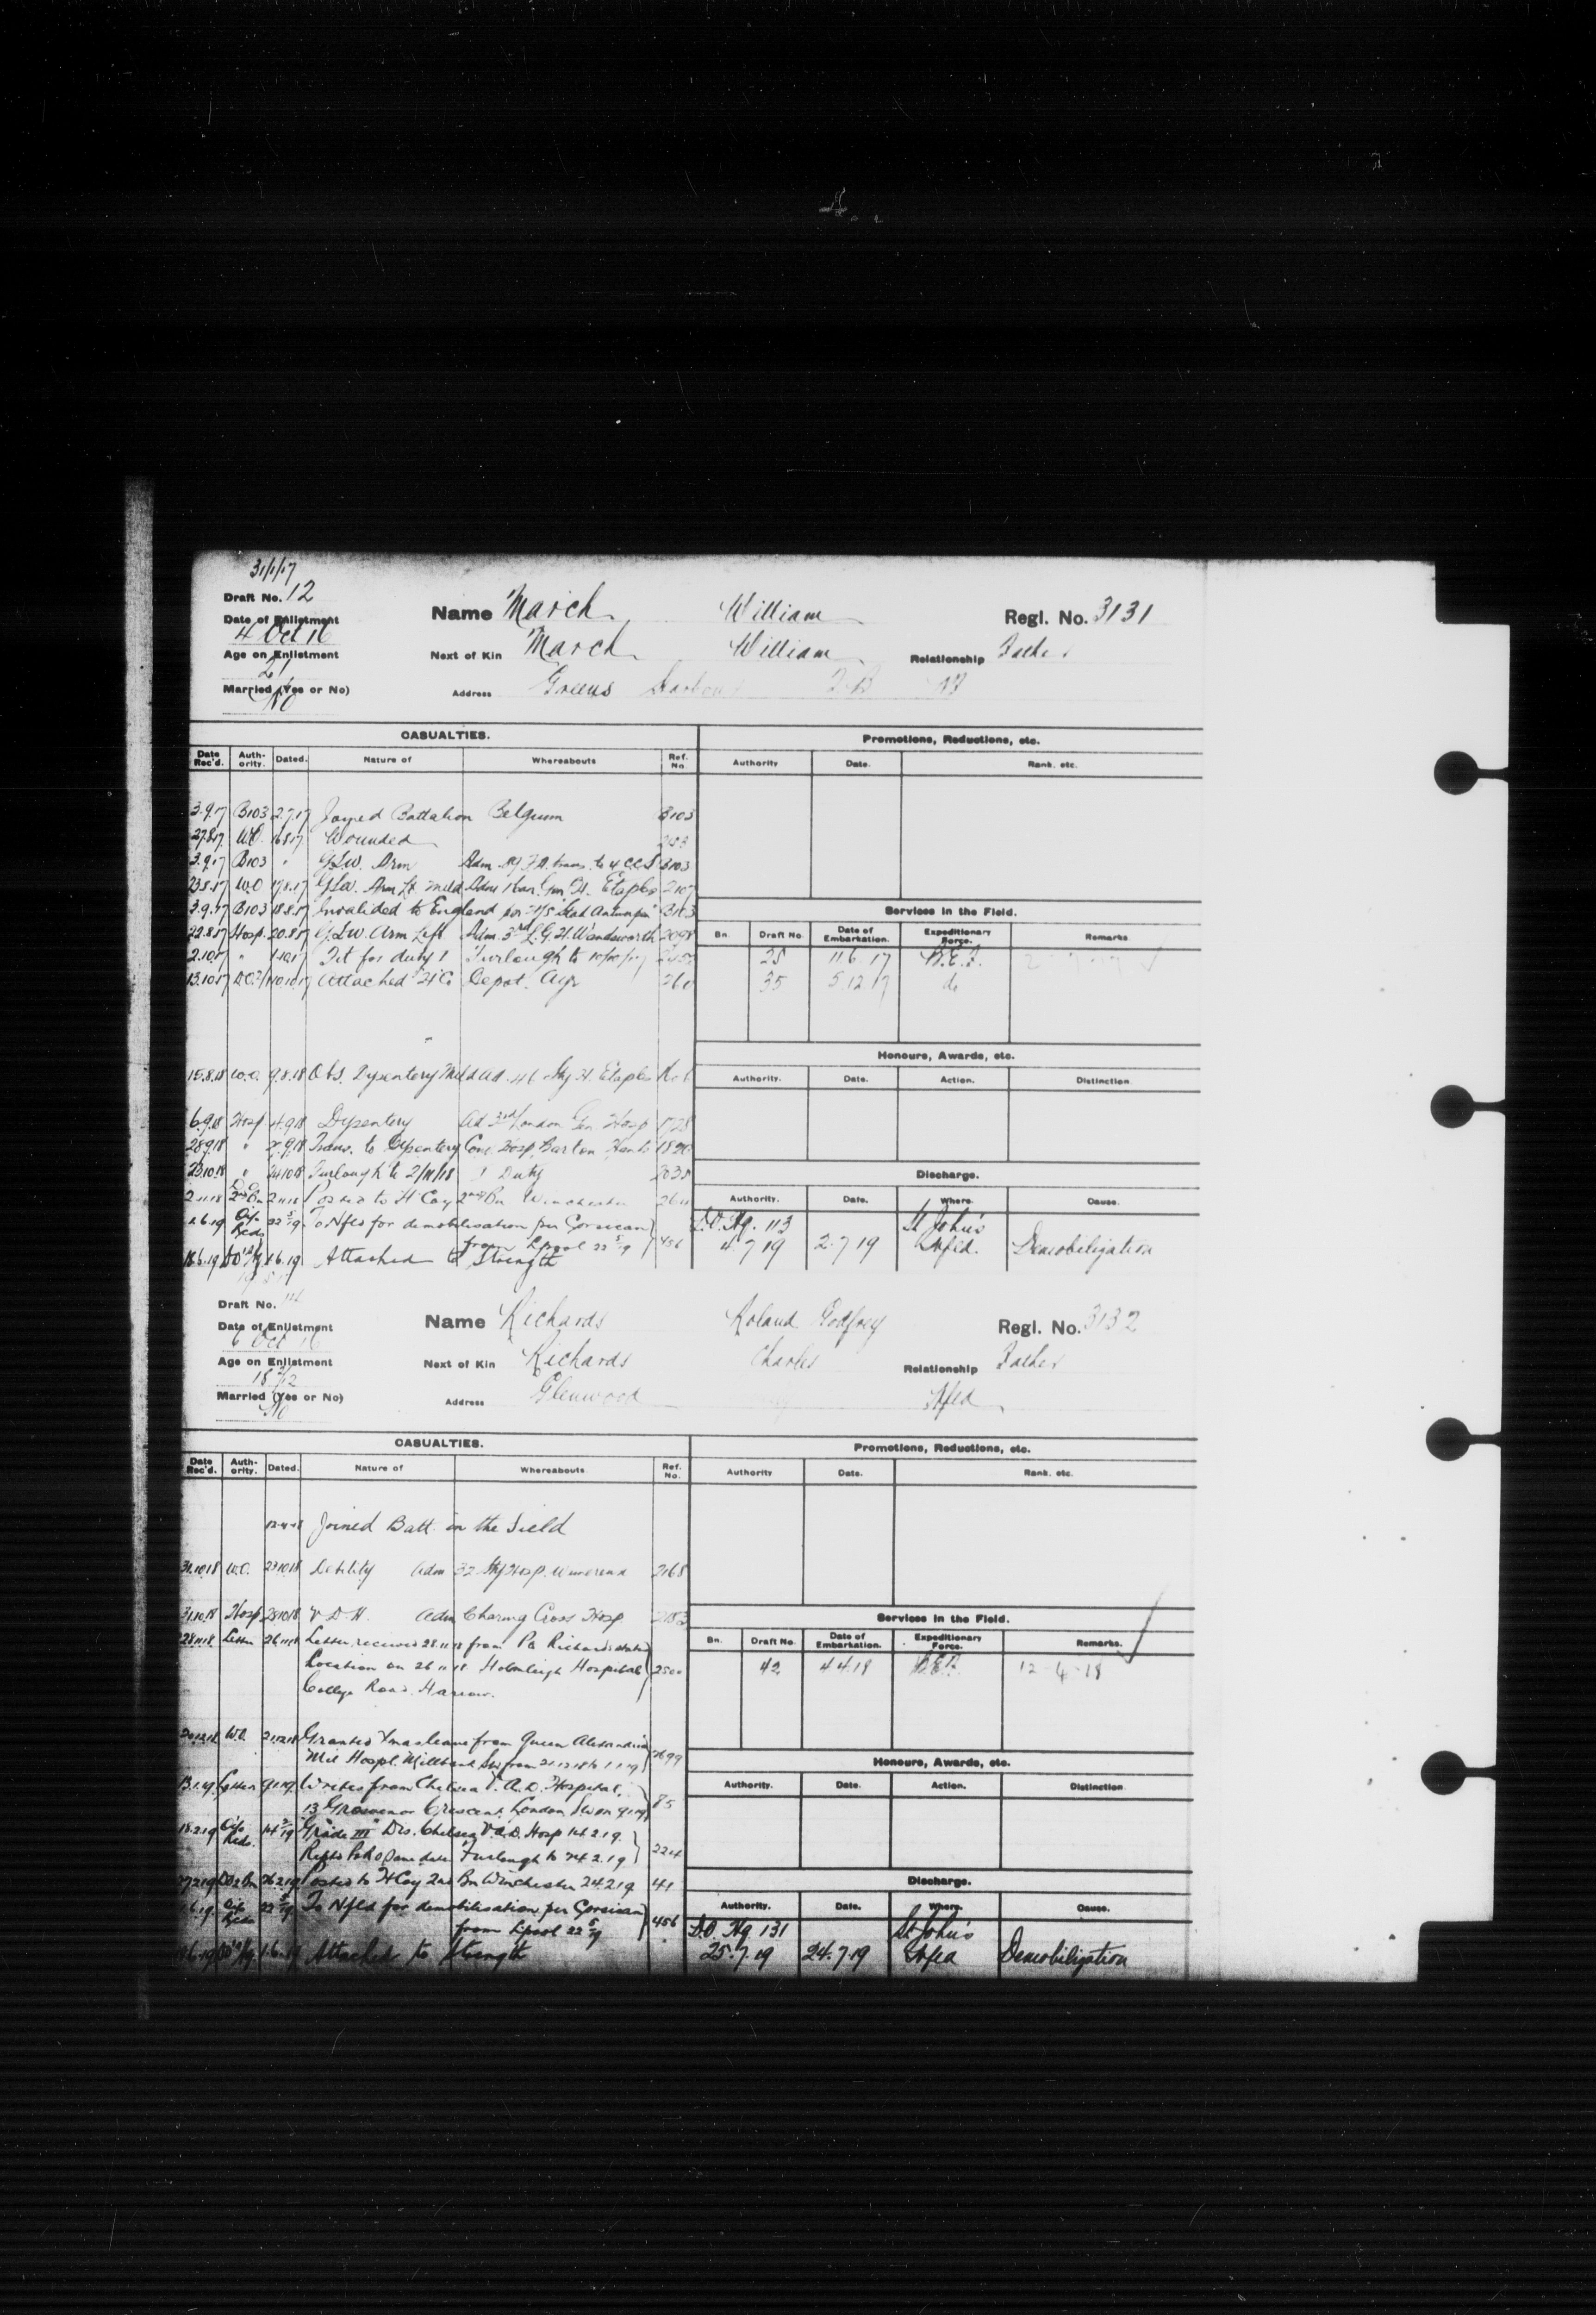 31/1/17
Draft No. 12
Date of Enlistment
4 Oct 16
Name March, William
Regl. No. 3131
Age on Enlistment
21
Next of Kin March William
Relationship Father
Married (Yes or No)
No
Address Greens Harbour T.B
CASUALTIES.
Promotions, Reductions, etc.
Date Rec'd. Authority. Dated. Nature of Whereabouts Ref. No.
Authority Date. Rank. etc.
3.9.17 B103 2.7.17 Joined Battalion Belgium B103
27.8.17 W.O. 16.8.17 Wounded
3.9.17 B103 " G.S.W. Arm Adm. F.A. trans. to 4 C.C.S B103
23.8.17 W.O 17.8.17 G.S.W. Arm Lt. mild Adm Gen. H. Etaples 2107
3.9.17 B103 18.8.17 Invalided to England per H/S "Stad Antwerpen" B103
22.8.17 Hosp. 20.8.17 G.S.W. Arm Left Adm. 3rd L.G.H. Wandsworth 2098
2.10.17 " 1.10.17 Fit for duty 1 Furlough to 10/10/17
13.10.17 10.10.17 Attached "H" Co Depot. Ayr
Services in the Field.
Bn. Draft No. Date of Embarkation. Expeditionary Force. Remarks
25 11 6. 17 B.E.F.
35 5.12 17 do
15.8.18 W.O. 9.8.18 Obs. Dysentery Mild Ad. 46 Sty H. Etaples
6.9.18 Hosp 4.9.18 Dysentery Ad 3rd London Gen Hosp 1728
28.9.18 " Trans. to Dysentery Conv. Hosp. Barton Hants
23.10.18 " Furlough to 2/11/18 1 Duty 2035
2.11.18 2nd Bn 2.11.18 Posted to H Coy 2nd Bn Winchester
1.6.19 Offr Reds 22 5/19 To Nfld for demobilisation per Corsican
from Lpool 22 5/19 456
1.6.19 Attached to Strength
Honours, Awards, etc.
Authority. Date. Action. Distinction
Discharge.
Authority. Date. Where. Cause.
D.O. Hq. 113
4.7 19 2.7 19 St John's Nfld. Demobilization
Draft No.
Date of Enlistment
6 Oct 16
Name Richards Roland Godfrey
Regl. No. 3132
Age on Enlistment
18
Next of Kin Richards Charles
Relationship Father
Married (Yes or No)
No
Address Glenwood Nfld
CASUALTIES.
Promotions, Reductions, etc.
Date Rec'd. Authority. Dated. Nature of Whereabouts Ref. No.
Authority Date. Rank. etc.
12.4.18 Joined Batt. in the Field
31.10.18 W.O. 23.10.18 Debility Adm 32 Sty Hosp. Wimereux 2168
31.10.18 Hosp 28.10.18 V.D.H. Adm Charing Cross Hosp 2183
28.11.18 Letter 26.11.18 Letter received 28.11.18 from Pte Richards states
Location on 26 11 18 Holmleigh Hospital 2500
College Road. Harrow.
20.12.18 W.O. 21.12.18 Granted Xmas leave from Queen Alexandria
Mil Hospl. Millbank SW from 21.12.18 to 1.1.19 2699
13.1.19 Letter 9.1.19 Writes from Chelsea V.A.D. Hospital,
13 Grosvenor Crescent, London SW on 9.1.19 85
18.2.19 14 2/19 "Grade III" Dis. Chelsea V.A.D. Hosp 14.2.19.
same date Furlough to 24.2.19 224
27.2.19 26.2.19 Posted to H Coy 2nd Bn Winchester 24.2.19 41
1.6.19. 22 5/19 To Nfld for demobilisation per Corsican
from Lpool 22 5/19 456
1.6.19 Attached to Strength
Services in the Field.
Bn. Draft No. Date of Embarkation. Expeditionary Force. Remarks.
42 4 4.18 B.E.F. 12-4-18
Honours, Awards, etc.
Authority. Date. Action. Distinction
Discharge.
Authority. Date. Where. Cause.
D.O. Hq 131
25.7.19 24.7.19 St John's Nfld Demobilization